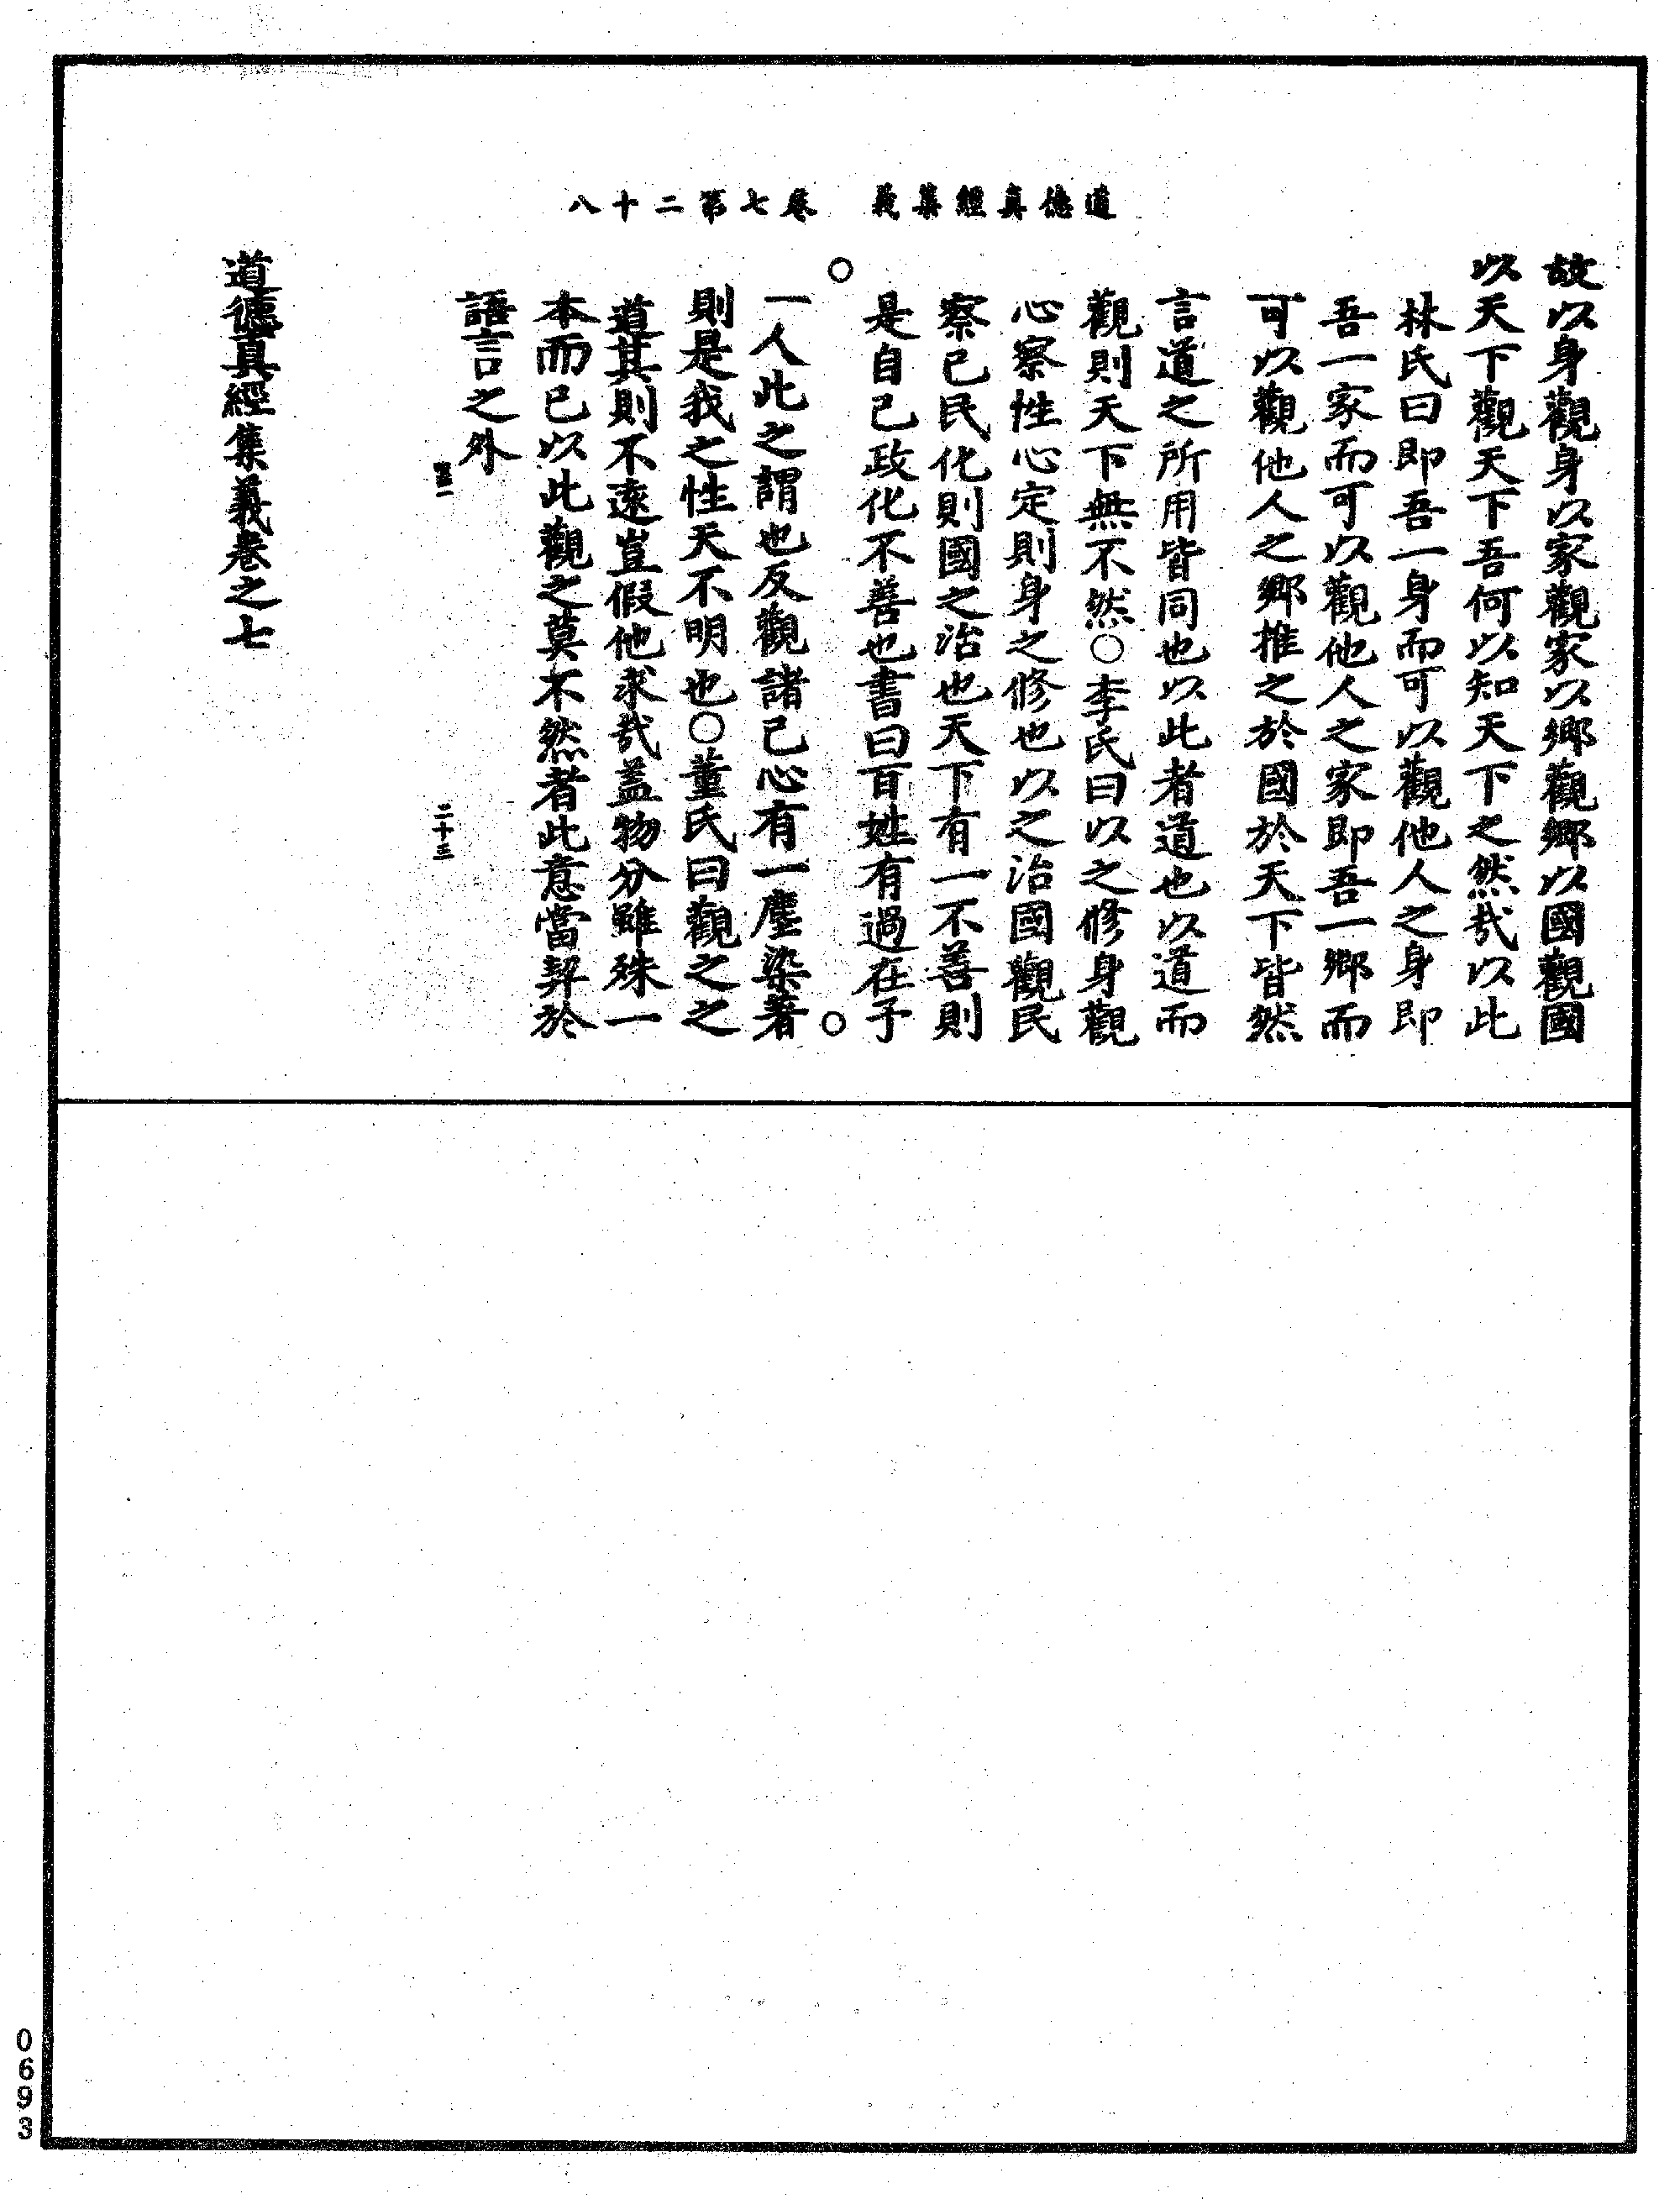 道德真經集義　卷七第二十八
故以身觀身以家觀家以鄉觀鄉以國觀國
以天下觀天下吾何以知天下之然哉以此
林氏曰即吾一身而可以觀他人之身即
吾一家而可以觀他人之家即吾一鄉而
可以觀他人之鄉推之於國於天下皆然
言道之所用皆同也以此者道也以道而
觀則天下無不然○李氏曰以之修身觀
心察性心定則身之修也以之治國觀民
察己民化則國之治也天下有一不善則
是自己政化不善也書曰百姓有過在予
一人此之謂也反觀諸己心有一塵染著
則是我之性天不明也○董氏曰觀之之
道其則不遠豈假他求哉盖物分雖殊一
本而已以此觀之莫不然者此意當契於
語言之外
二十三
道德真經集義卷之七
0693